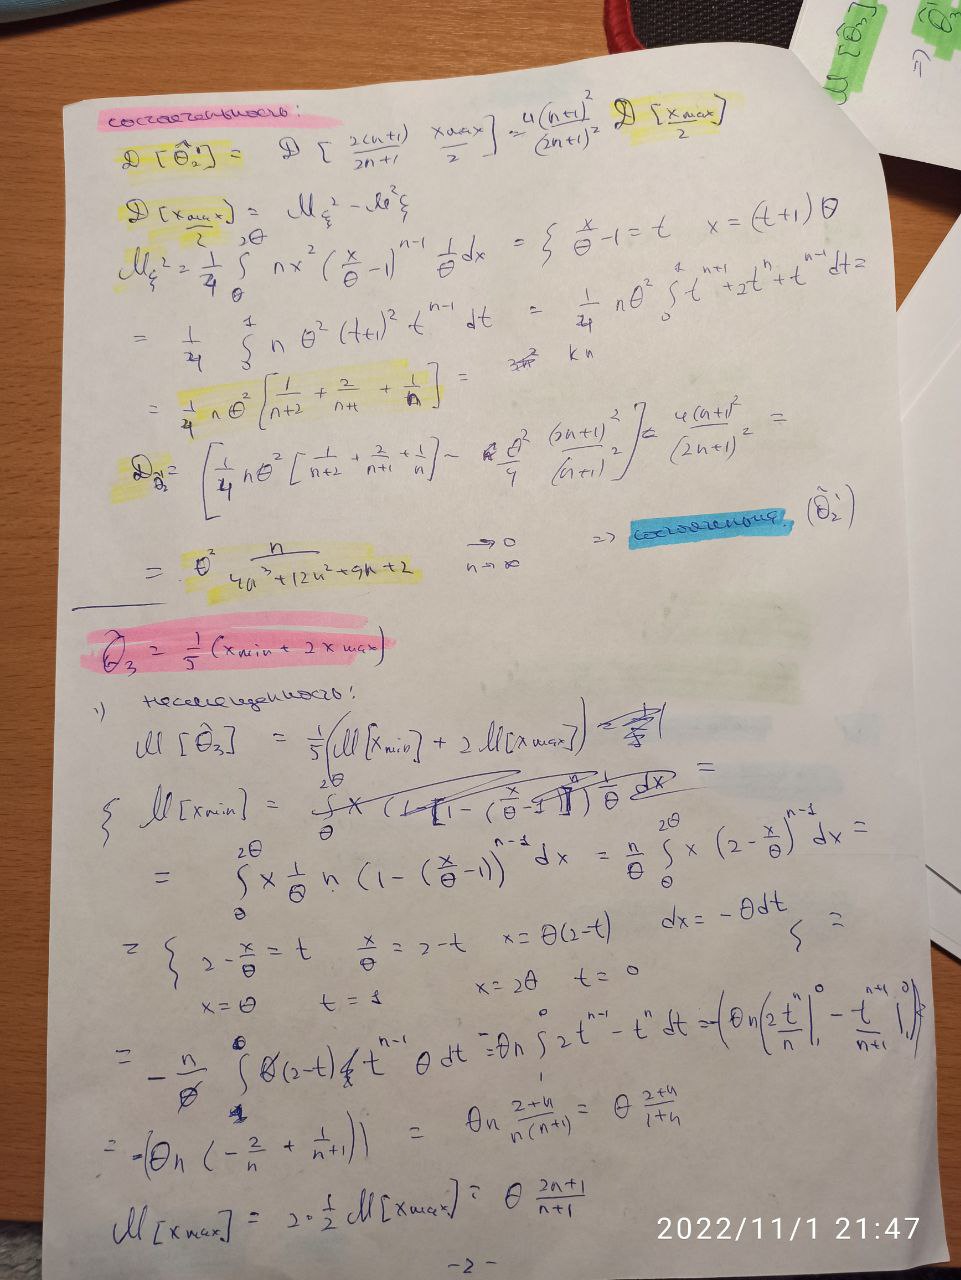 M [θ̂₃]
⇒ θ̂₃
состоятельность:
D [θ̃₂'] = D [ 2(n+1)/(2n+1) · xmax/2 ] = 4(n+1)²/(2n+1)² D [xmax/2]
D [xmax/2] = Mξ² - M²ξ
Mξ² = 1/4 ∫_θ^{2θ} nx² (x/θ -1)^{n-1} 1/θ dx = { x/θ -1 = t x = (t+1)θ
= 1/4 ∫_0^1 n θ² (t+1)² t^{n-1} dt = 1/4 nθ² ∫_0^1 t^{n+1} + 2t^n + t^{n-1} dt =
= 1/4 nθ² [ 1/(n+2) + 2/(n+1) + 1/n ] =
D_θ̃₂' = [ 1/4 nθ² [ 1/(n+2) + 2/(n+1) + 1/n ] - θ²/4 (2n+1)²/(n+1)² ] 4(n+1)²/(2n+1)² =
= θ² n/(4n³+12n²+9n+2) →0 n→∞ => состоятельная (θ̃₂')
θ̂₃ = 1/5 (xmin + 2xmax)
1) несмещенность:
M [θ̂₃] = 1/5 (M[xmin] + 2M[xmax])
{ M[xmin] = ∫_θ^{2θ} x (1 - [1 - (x/θ -1)]^n) 1/θ dx =
= ∫_θ^{2θ} x 1/θ n (1 - (x/θ -1))^{n-1} dx = n/θ ∫_θ^{2θ} x (2 - x/θ)^{n-1} dx =
= { 2 - x/θ = t x/θ = 2-t x = θ(2-t) dx = -θdt } =
x = θ t = 1 x = 2θ t = 0
= - n/θ ∫_1^0 θ(2-t) t^{n-1} θ dt = -θn ∫_1^0 2t^{n-1} - t^n dt = -(θn (2t^n/n |_1^0 - t^{n+1}/(n+1) |_1^0))
= -(θn (-2/n + 1/(n+1))) = θn (2+n)/(n(n+1)) = θ (2+n)/(1+n)
M[xmax] = 2·1/2 M[xmax] = θ (2n+1)/(n+1)
-2-
2022/11/1 21:47